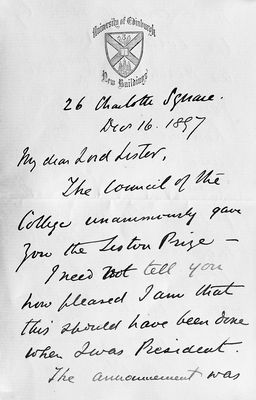 University of Edinburgh
New Buildings
26 Charlotte Square.
Decr 16. 1897
My dear Lord Lister,
The Council of the
College unanimously gave
you the Liston Prize —
I need not tell you
how pleased I am that
this should have been done
when I was President.
The announcement was